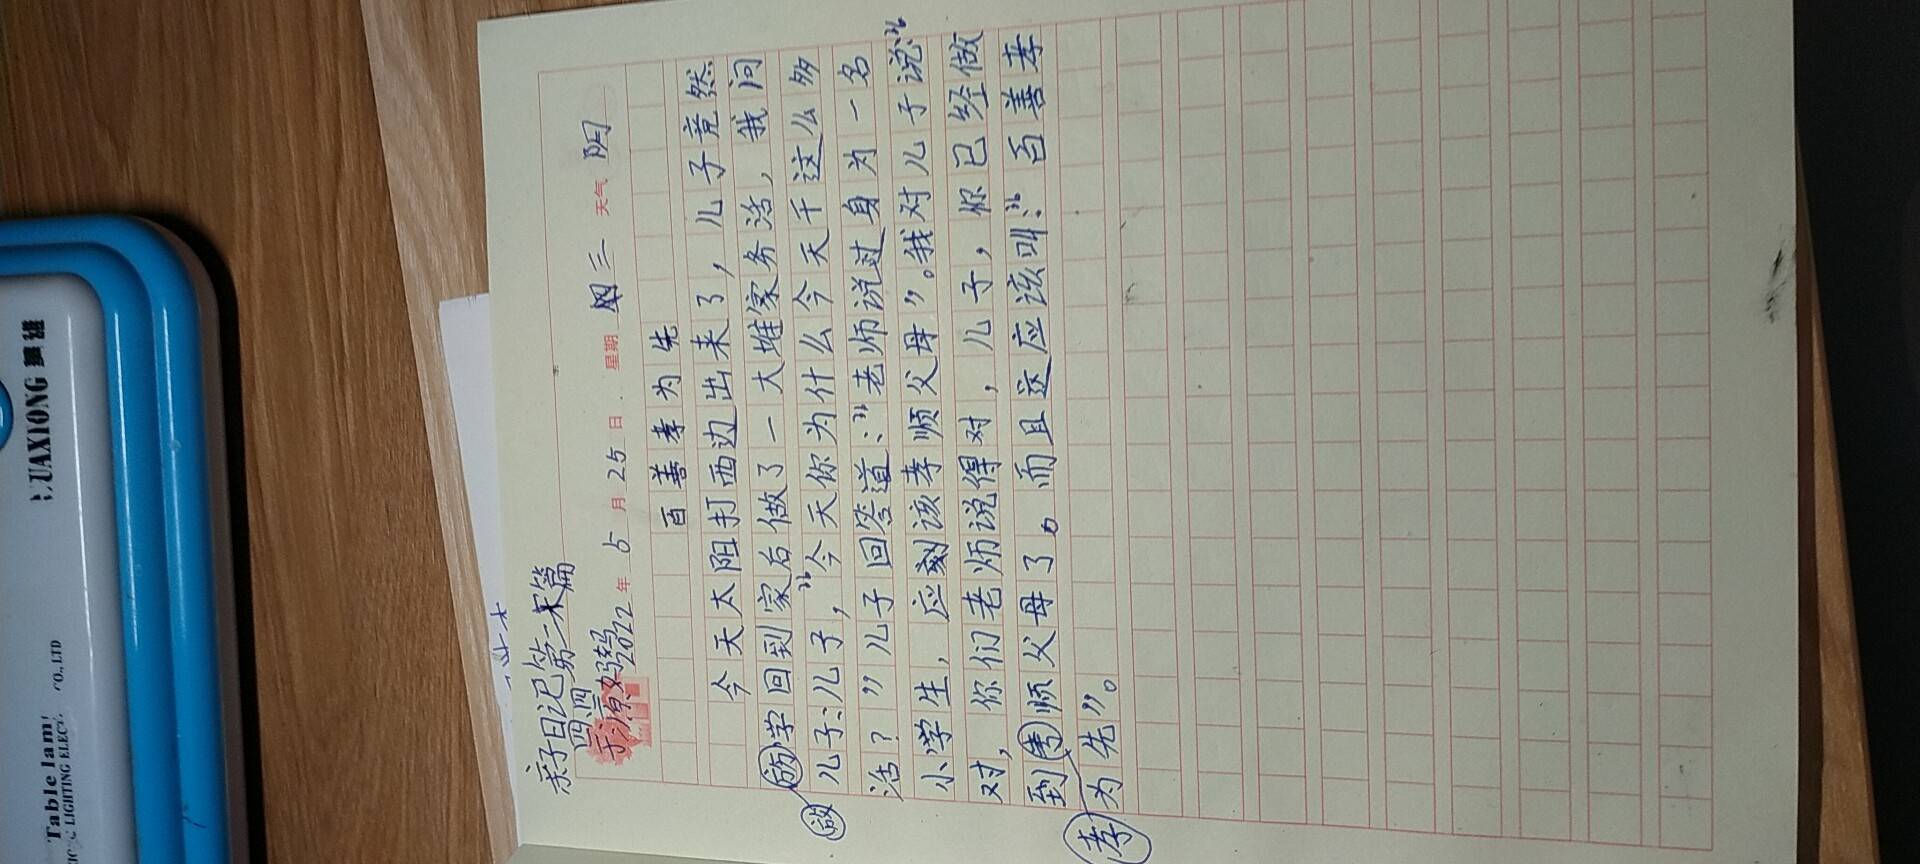 亲子日记第一末篇
四.四
于源妈妈
2022年5月25日.星期三 天气 阴
百善孝为先
今天太阳打西边出来了，儿子竟然
学回到家后做了一大堆家务活，我问
儿子:儿子，“今天你为什么今天干这么多
活？”儿子回答道:“老师说过身为一名
小学生，应该孝顺父母”。我对儿子说:“
对，你们老师说得对，儿子，你已经做
到孝顺父母了。而且这应该叫:“百善孝
为先”。
放
孝
HUAXIONG 華雄
Table lam
LIGHTING ELEC
CO.,LTD